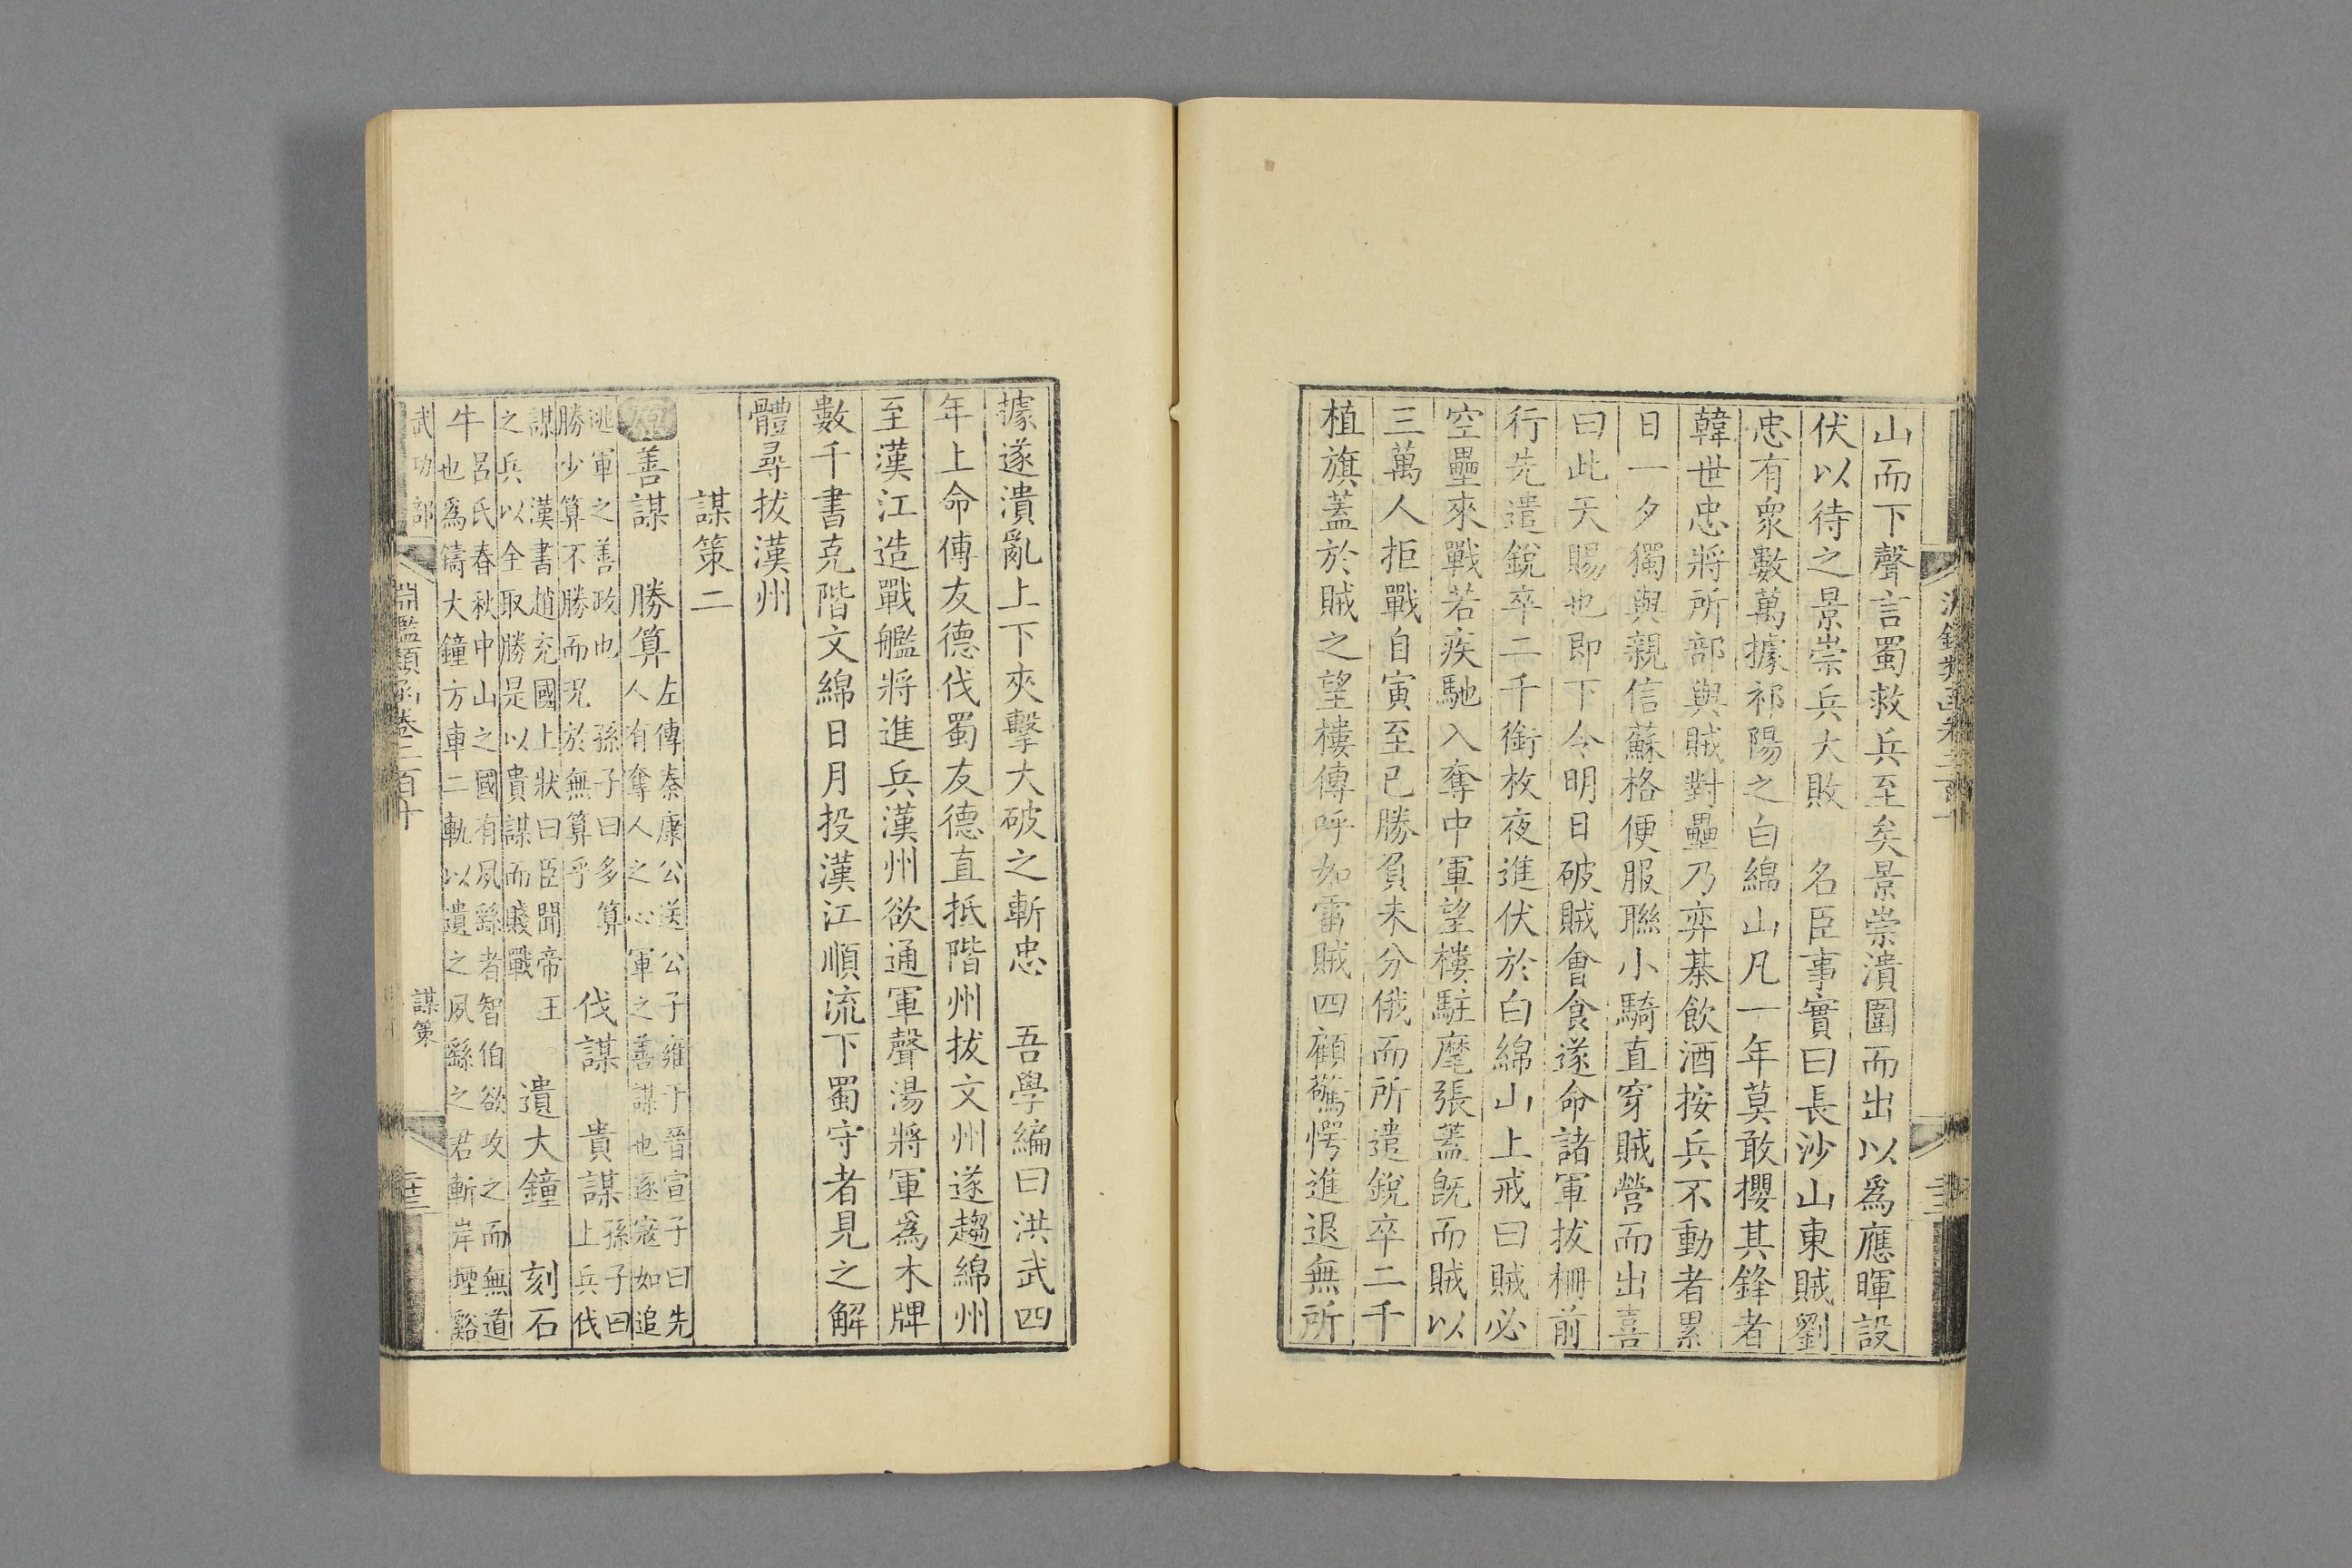 山而下聲言蜀救兵至矣景崇潰圍而出以爲應暉設
伏以待之景崇兵大敗　名臣事實曰長沙山東賊劉
忠有衆數萬據祁陽之白綿山凡一年莫敢攖其鋒者
韓世忠將所部與賊對壘乃弈棊飲酒按兵不動者累
日一夕獨與親信蘇格便服聯小騎直穿賊營而出喜
曰此天賜也即下令明日破賊會食遂命諸軍拔柵前
行先遣銳卒二千銜枚夜進伏於白綿山上戒曰賊必
空壘來戰若疾馳入奪中軍望樓駐麾張蓋旣而賊以
三萬人拒戰自寅至巳勝負未分俄而所遣銳卒二千
植旗蓋於賊之望樓傳呼如雷賊四顧驚愕進退無所
據遂潰亂上下夾擊大破之斬忠　吾學編曰洪武四
年上命傅友德伐蜀友德直抵階州拔文州遂趨綿州
至漢江造戰艦將進兵漢州欲通軍聲湯將軍爲木牌
數千書克階文綿日月投漢江順流下蜀守者見之解
體尋拔漢州
謀策二
原善謀　勝算
左傳秦康公送公子雍于晉宣子曰先
人有奪人之心軍之善謀也逐寇如追
逃軍之善政也　孫子曰多算
勝少算不勝而況於無算乎
伐謀　貴謀
孫子曰
上兵伐
謀　漢書趙充國上狀曰臣聞帝王
之兵以全取勝是以貴謀而賤戰
遺大鐘　刻石
牛
呂氏春秋中山之國有夙繇者智伯欲攻之而無道
也爲鑄大鐘方車二軌以遺之夙繇之君斬岸堙谿
武功部
淵鑑類函卷二百十
謀策